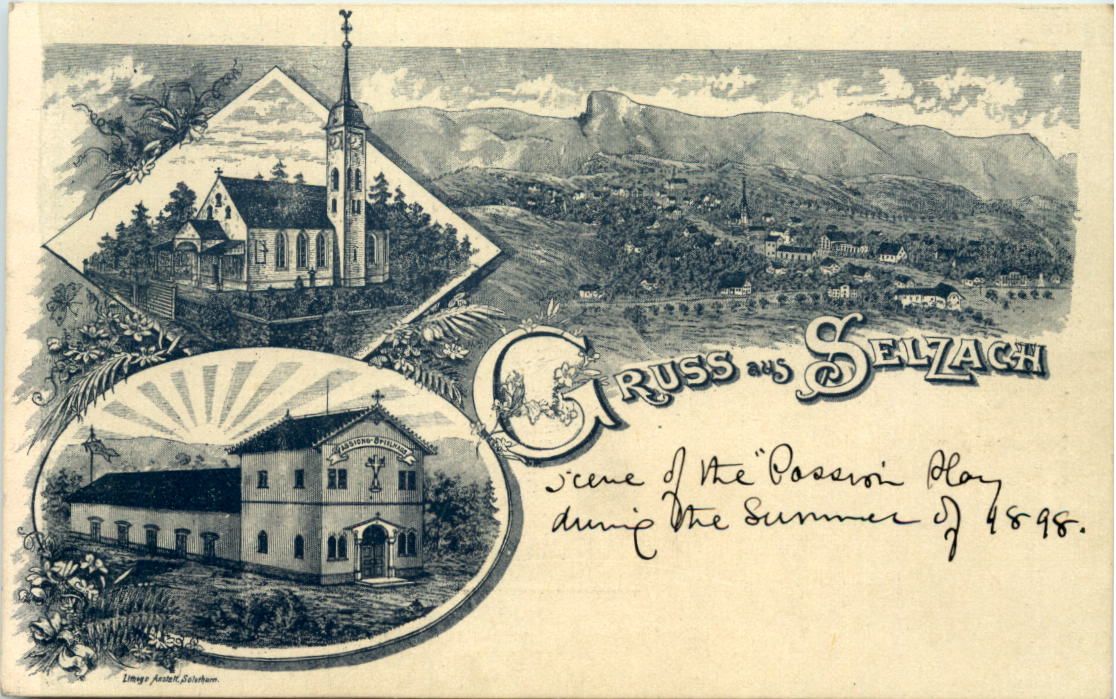 PASSIONS-SPIELHAUS
GRUSS aus SELZACH
scene of the "Passion Play
during the Summer of 1898.
Lithogr. Anstalt, Solothurn.